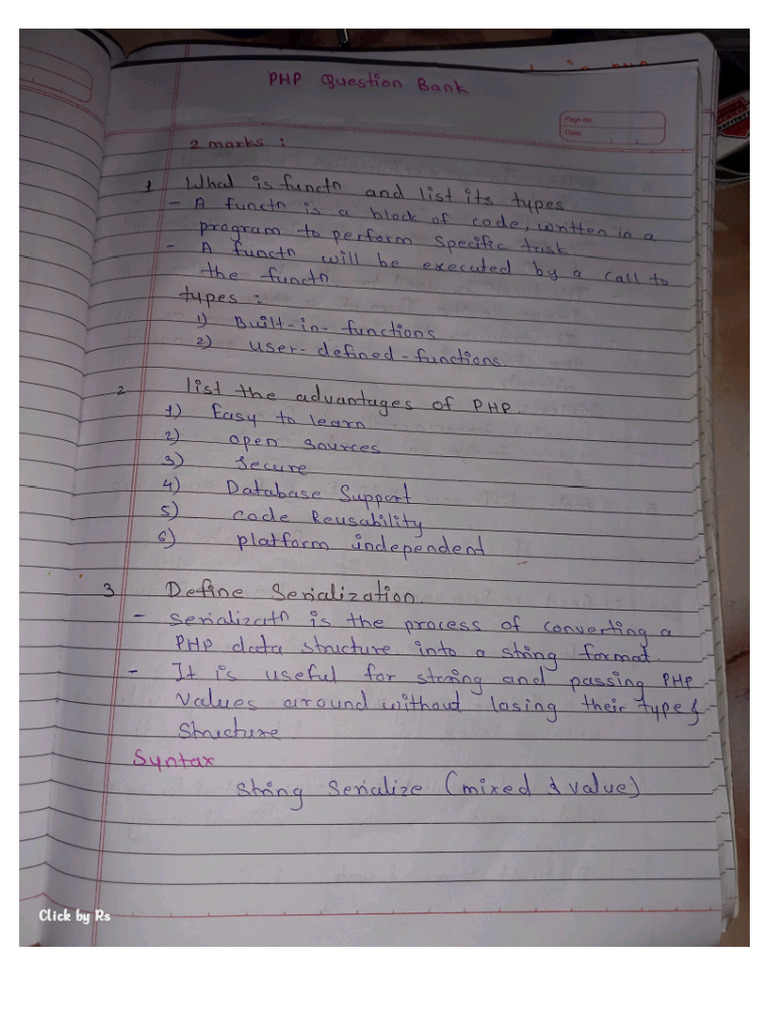 PHP Question Bank
Page No.
Date
2 marks :
1 What is functn and list its types
- A functn is a block of code, written in a
program to perform specific task
- A functn will be executed by a call to
the functn
types :
1) Built-in-functions
2) user-defined-functions.
2 list the advantages of PHP.
1) Easy to learn
2) open sources
3) Secure
4) Database Support
5) code Reusability
6) platform independent
3 Define Serialization.
- Serializatn is the process of converting a
PHP data structure into a string format.
- It is useful for storing and passing PHP
values around without losing their type &
structure
Syntax
string serialize (mixed $ value)
Click by Rs